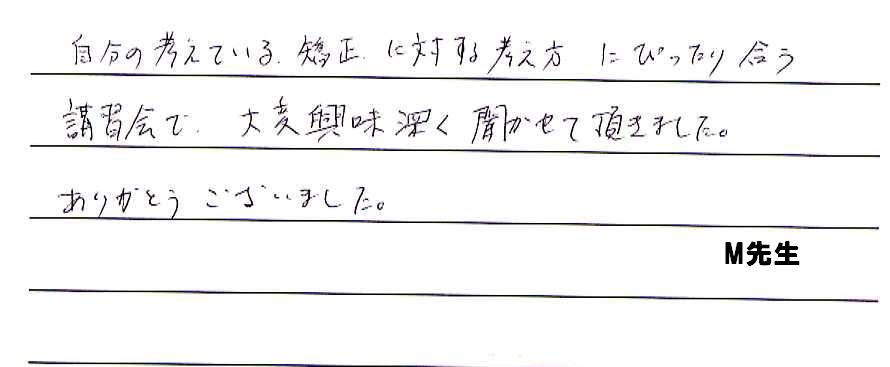 自分の考えている矯正に対する考え方にぴったり合う
講習会で、大変興味深く聞かせて頂きました。
ありがとうございました。
M先生